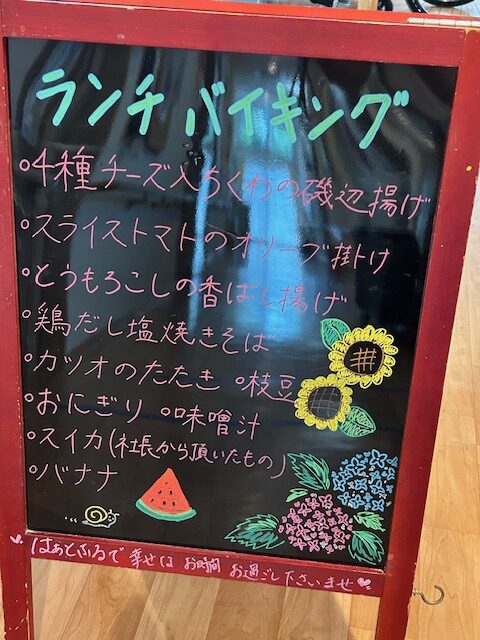 ランチ バイキング
○4種チーズ入ちくわの磯辺揚げ
○スライストマトのオリーブ掛け
○とうもろこしの香ばし揚げ
○鶏だし塩焼きそば
○カツオのたたき ○枝豆
○おにぎり ○味噌汁
○スイカ(社長から頂いたもの)
○バナナ
♥はぁとふるで 幸せな お時間 お過ごし下さいませ♥